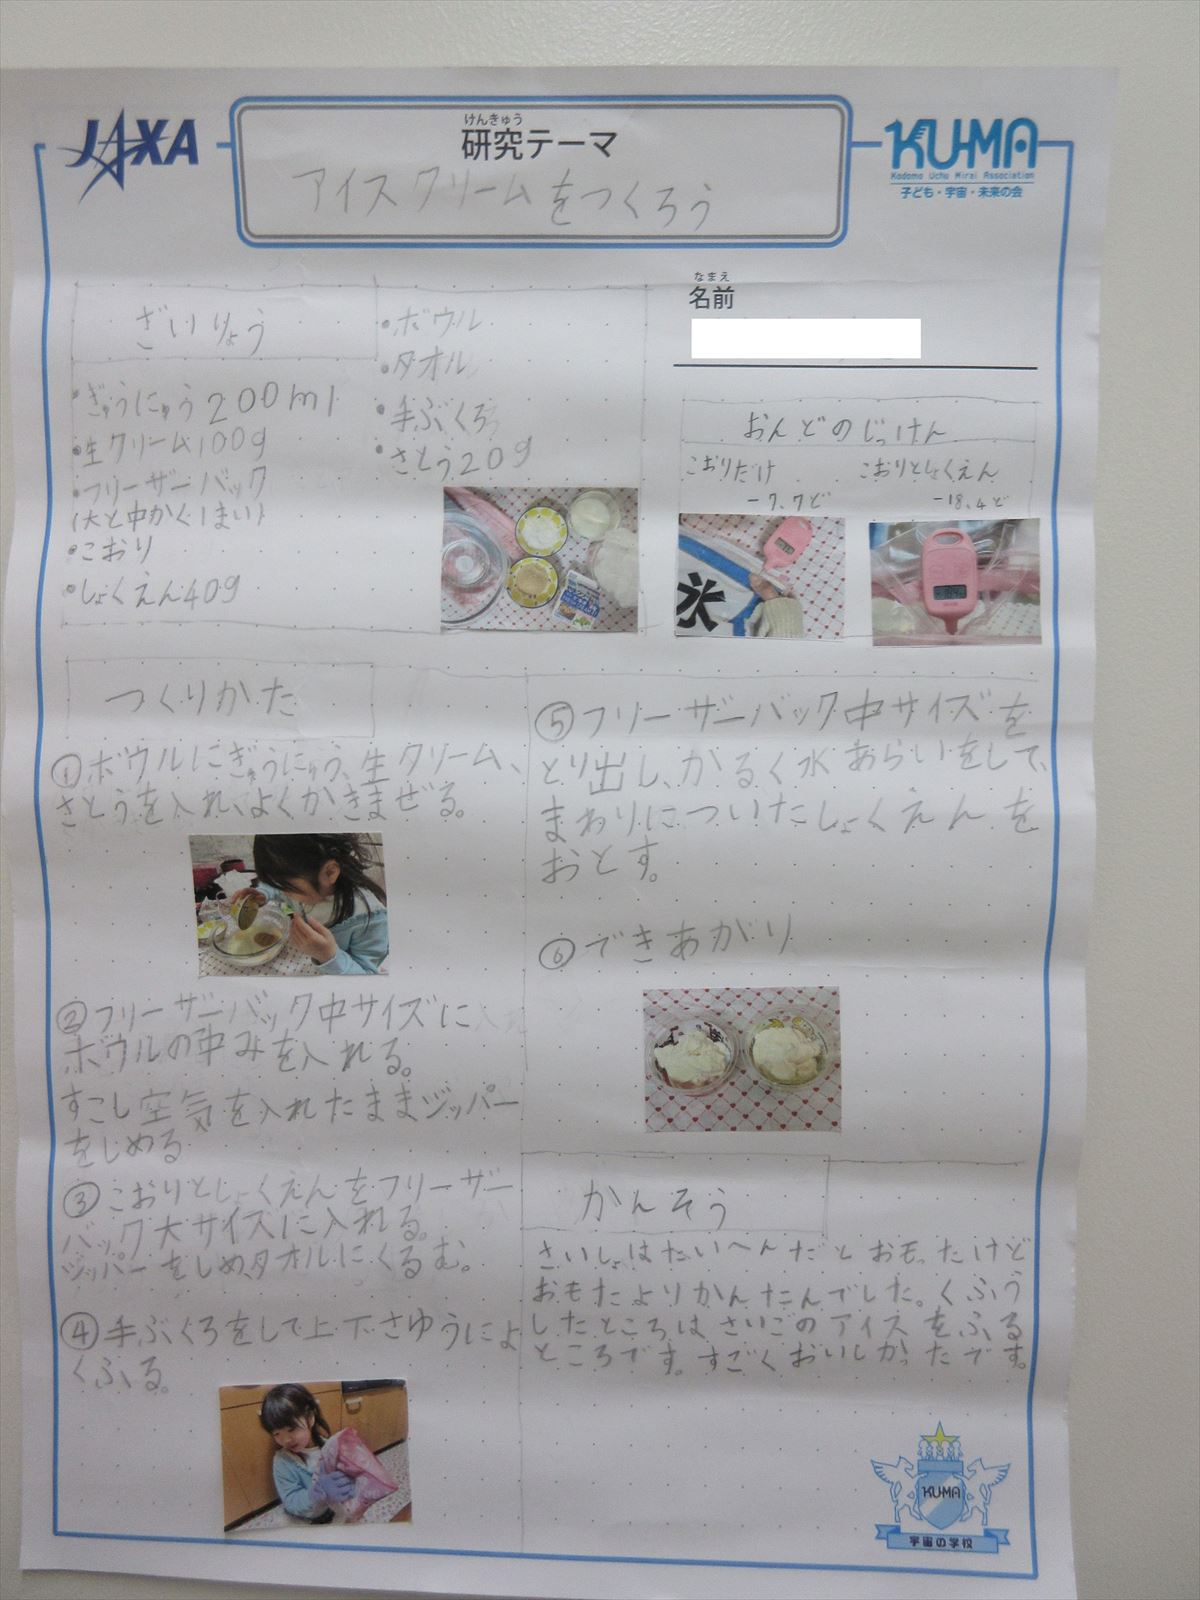 JAXA
けんきゅう
研究テーマ
アイスクリームをつくろう
KU-MA
Kodomo Uchu Mirai Association
子ども・宇宙・未来の会
なまえ
名前
ざいりょう
・ぎゅうにゅう200ml
・生クリーム100g
・フリーザーバック
(大と中かく1まい)
・こおり
・しょくえん40g
・ボウル
・タオル
・手ぶくろ
・さとう20g
おんどのじっけん
こおりだけ
-7.7ど
こおりとしょくえん
-18.4ど
氷
つくりかた
①ボウルにぎゅうにゅう、生クリーム、
さとうを入れ、よくかきまぜる。
②フリーザーバック中サイズに
ボウルの中みを入れる。
すこし空気を入れたままジッパー
をしめる
③こおりとしょくえんをフリーザー
バック大サイズに入れる。
ジッパーをしめ、タオルにくるむ。
④手ぶくろをして上下さゆうによ
くふる。
⑤フリーザーバック中サイズを
とり出し、かるく水あらいをして、
まわりについたしょくえんを
おとす。
⑥できあがり
かんそう
さいしょはたいへんだとおもったけど
おもたよりかんたんでした。くふう
したところはさいごのアイスをふる
ところです。すごくおいしかったです。
KU-MA
宇宙の学校